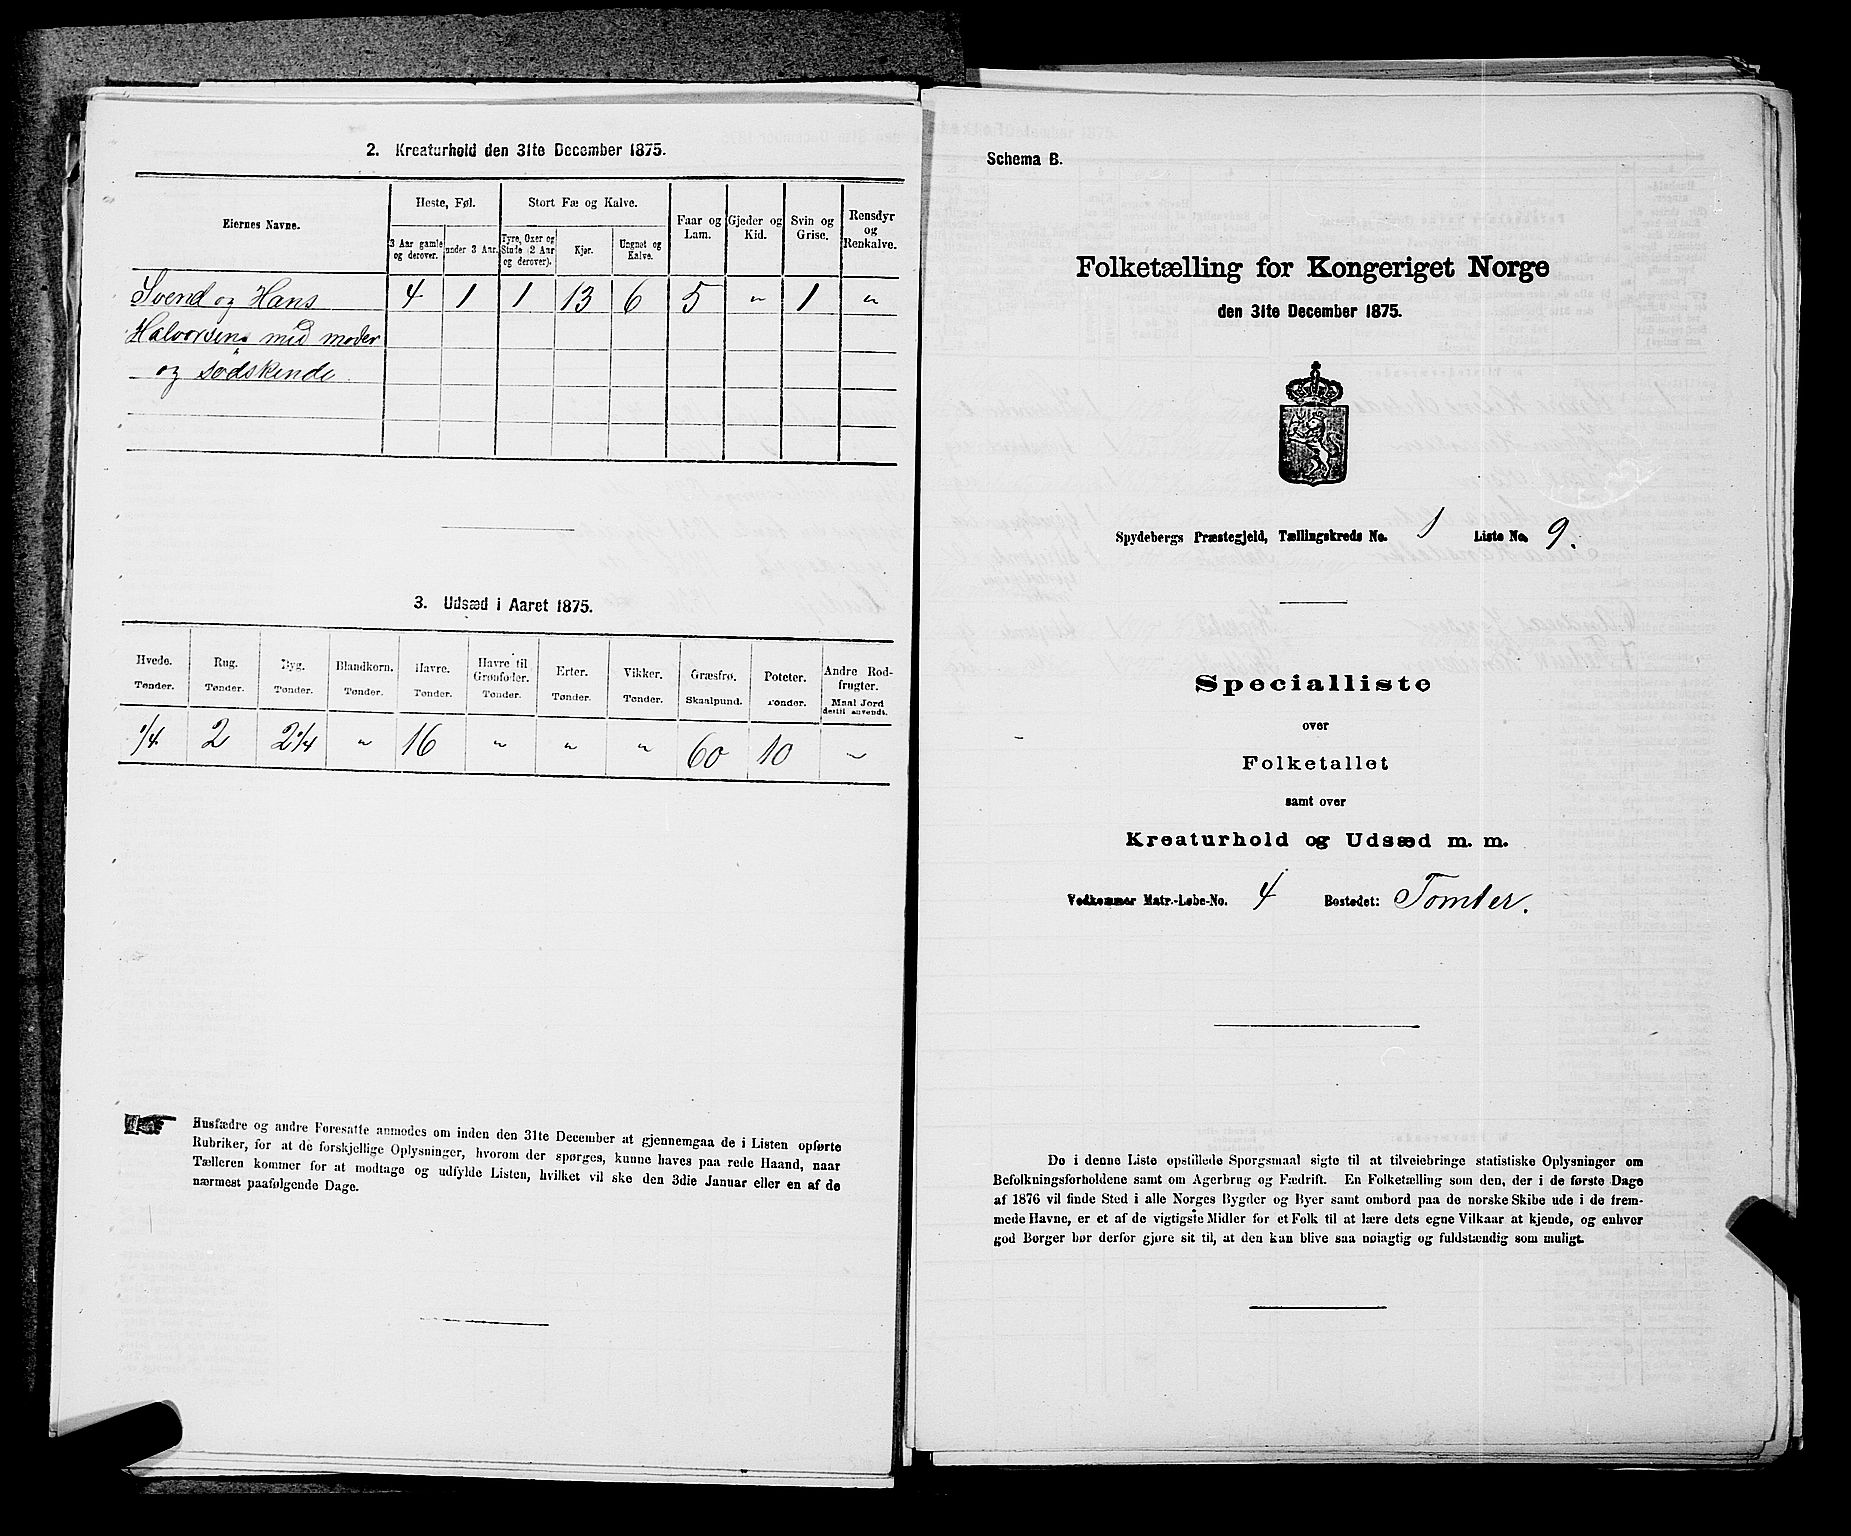 2. Kreaturhold den 31te December 1875.
Eiernes Navne.
Heste, Føl.
Stort Fæ og Kalve.
Faar og Lam.
Gjeder og Kid.
Svin og Grise.
Rensdyr og Renkalve.
3 Aar gamle og derover.
under 3 Aar.
Tyre, Oxer og Stude (2 Aar og derover).
Kjør.
Ungnøt og Kalve.
Svend og Hans 4 1 1 13 6 5 " 1 "
Halvorsens med moder
og södskende
3. Udsæd i Aaret 1875.
Hvede. Rug. Byg. Blandkorn. Havre. Havre til Grønfoder. Erter. Vikker. Græsfrø. Poteter. Andre Rodfrugter.
Tønder. Tønder. Tønder. Tønder. Tønder. Tønder. Tønder. Tønder. Skaalpund. Tønder. Maal Jord dertil anvendt.
1/4 2 2 1/4 " 16 " " " 60 10 "
Husfædre og andre Foresatte anmodes om inden den 31te December at gjennemgaa de i Listen opførte
Rubriker, for at de forskjellige Oplysninger, hvorom der spørges, kunne haves paa rede Haand, naar
Tælleren kommer for at modtage og udfylde Listen, hvilket vil ske den 3die Januar eller en af de
nærmest paafølgende Dage.
Schema B.
Folketælling for Kongeriget Norge
den 31te December 1875.
Spydebergs Præstegjeld, Tællingskreds No. 1 Liste No. 9.
Specialliste
over
Folketallet
samt over
Kreaturhold og Udsæd m. m.
Vedkommer Matr.-Løbe-No. 4 Bostedet: Tomter.
De i denne Liste opstillede Spørgsmaal sigte til at tilveiebringe statistiske Oplysninger om
Befolkningsforholdene samt om Agerbrug og Fædrift. En Folketælling som den, der i de første Dage
af 1876 vil finde Sted i alle Norges Bygder og Byer samt ombord paa de norske Skibe ude i de frem-
mede Havne, er et af de vigtigste Midler for et Folk til at lære dets egne Vilkaar at kjende, og enhver
god Borger bør derfor gjøre sit til, at den kan blive saa nøiagtig og fuldstændig som muligt.